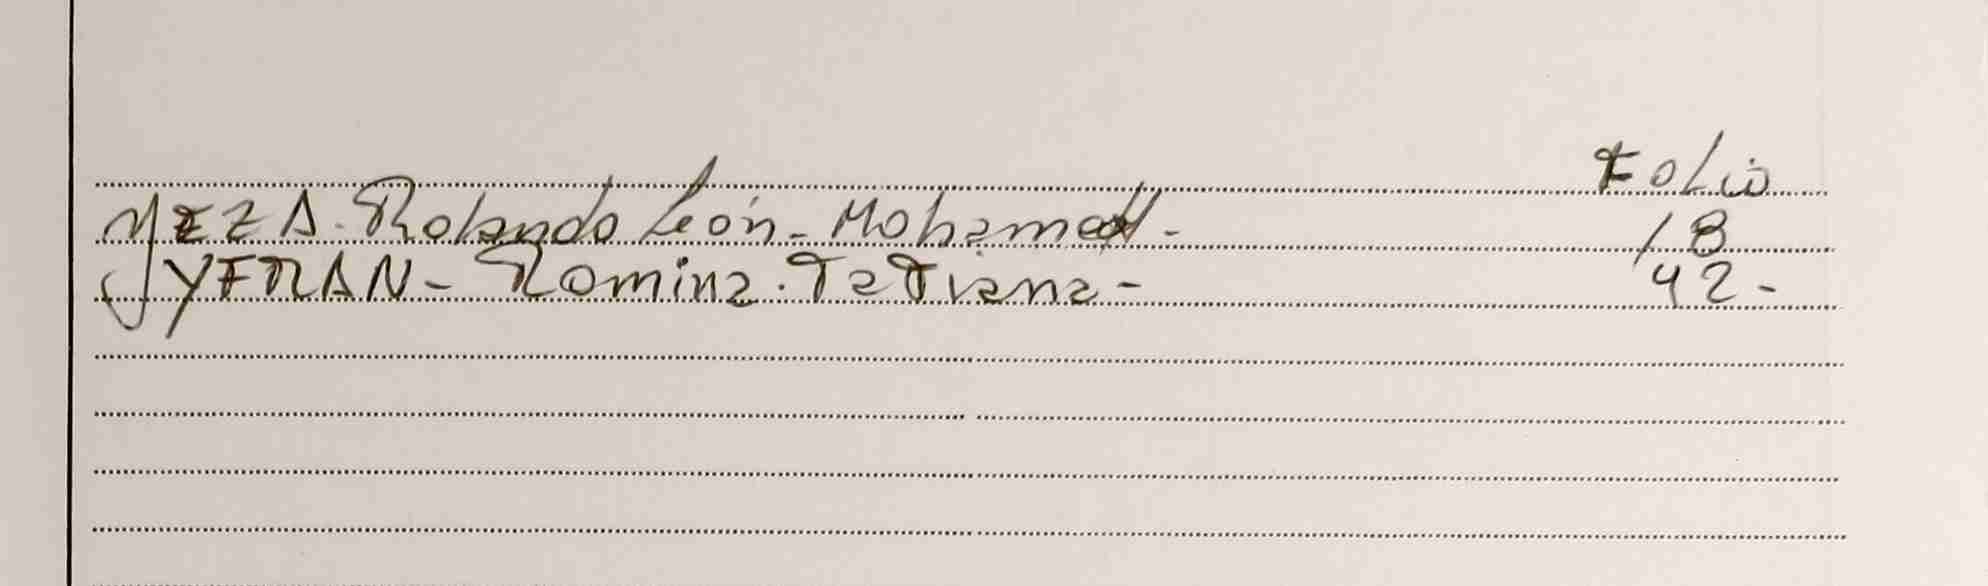 Folio
YEZZA. Rolando León - Mohamed - 18
YFRAN - Romina. Tatiana - 42 -